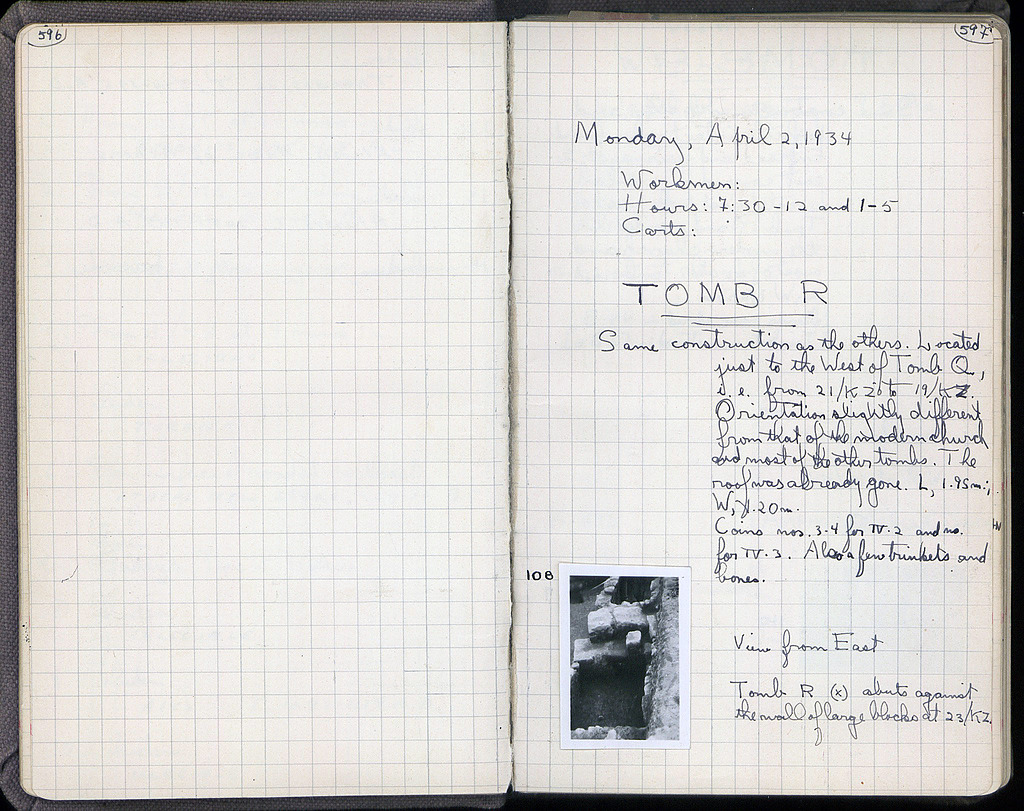 596
597
Monday, April 2, 1934
Workmen:
Hours: 7:30-12 and 1-5
Carts:
TOMB R
Same construction as the others. Located
just to the West of Tomb Q,
i.e. from 21/KZ to 19/KZ.
Orientation slightly different
from that of the modern church
and most of the other tombs. The
roof was already gone. L, 1.95m.;
W, 1.20m.
Coins nos. 3-4 for IV-2 and no.
for IV-3. Also a few trinkets and
bones.
108
View from East
Tomb R (x) abuts against
the wall of large blocks at 23/KZ.